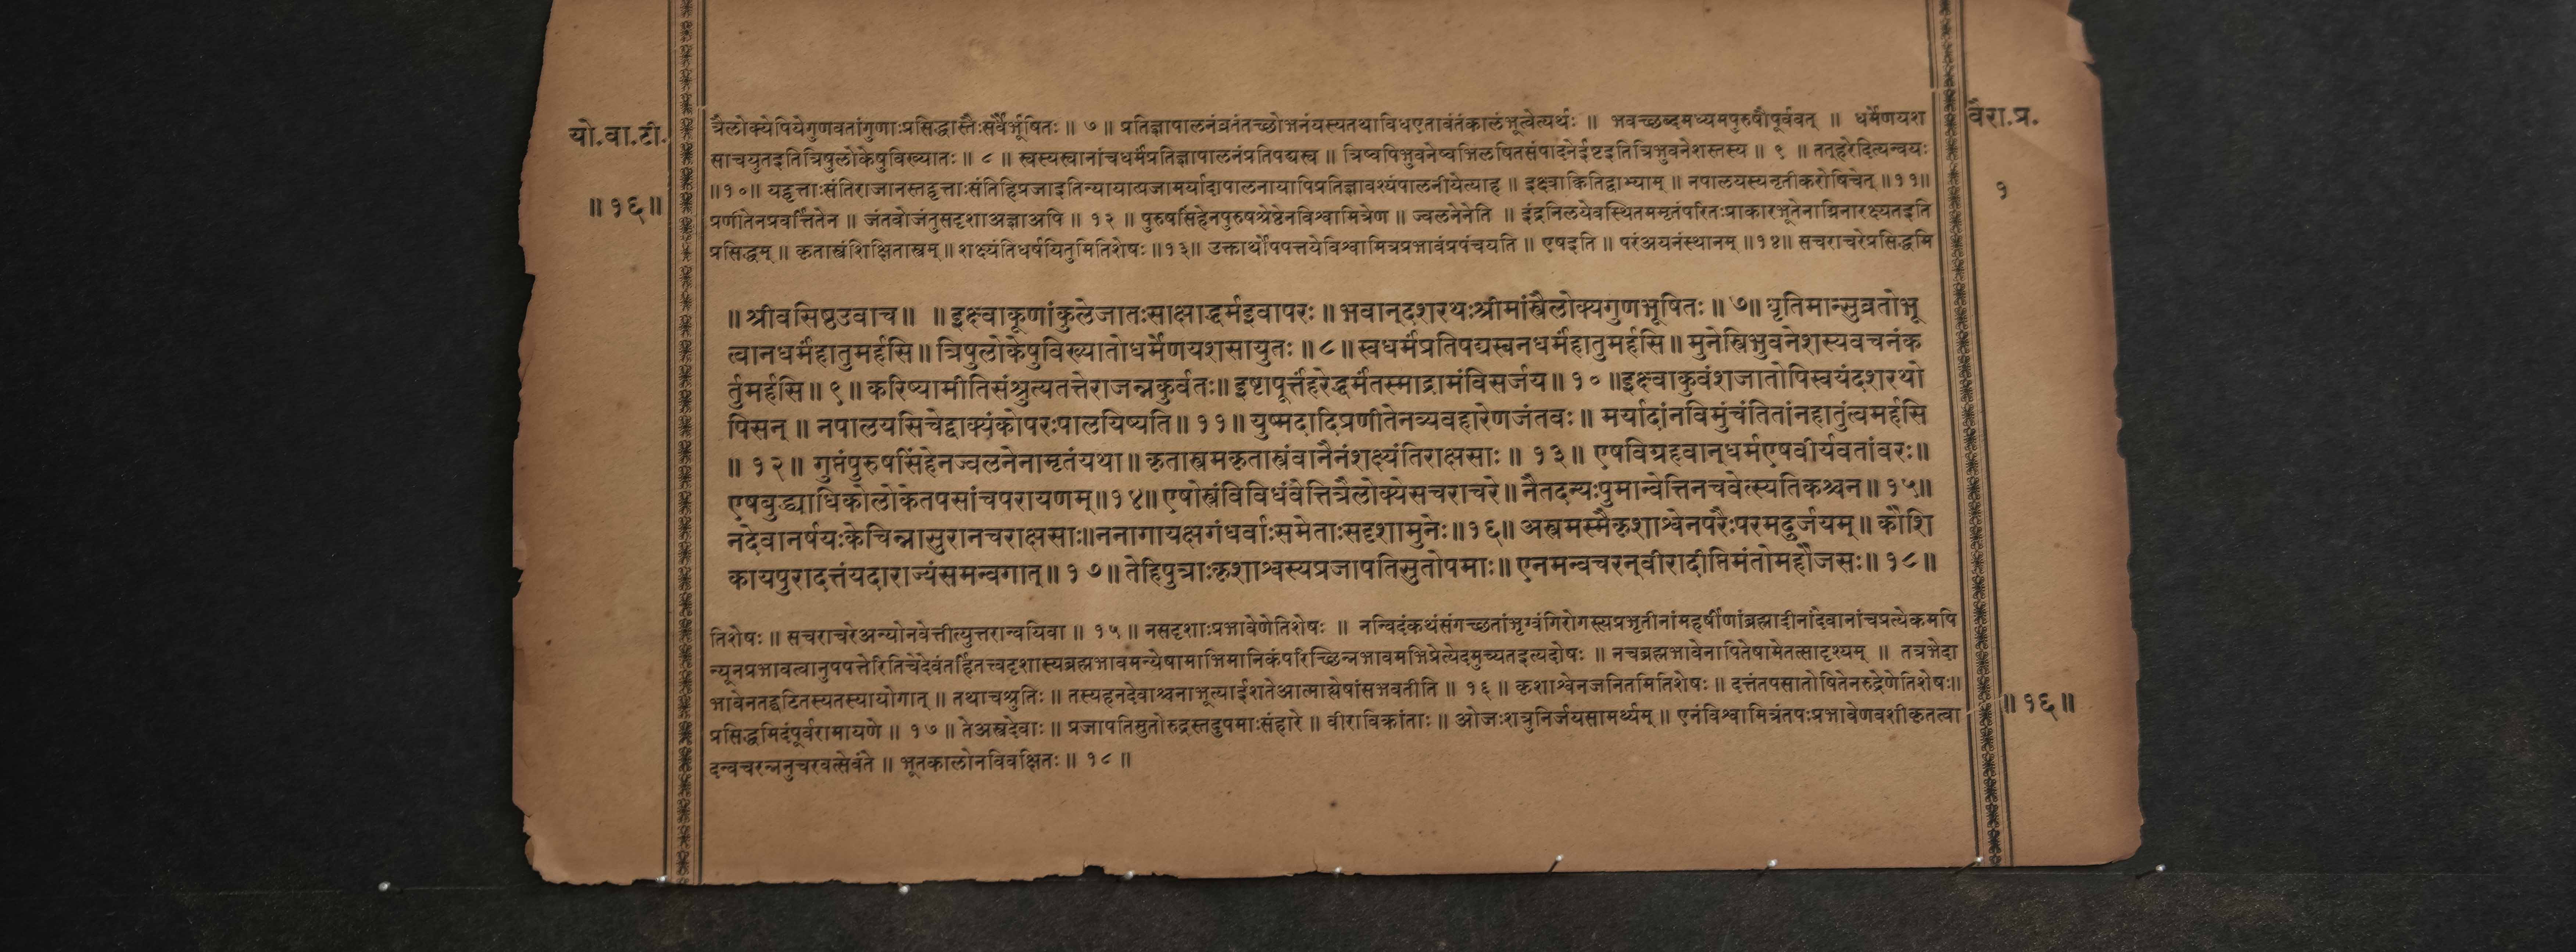 यो.वा.टी.
॥१६॥
वैरा.प्र.
१
त्रैलोक्येपियेगुणवतांगुणाःप्रसिद्धास्तैःसर्वैर्भूषितः ॥ ७ ॥ प्रतिज्ञापालनंव्रतंतच्छोभनंयस्यतथाविधएतावंतंकालंभूत्वेत्यर्थः ॥ भवच्छब्दमध्यमपुरुषौपूर्ववत् ॥ धर्मेणयश
साचयुतइतित्रिषुलोकेषुविख्यातः ॥ ८ ॥ स्वस्यस्वानांचधर्मंप्रतिज्ञापालनंप्रतिपद्यस्व ॥ त्रिष्वपिभुवनेष्वभिलषितसंपादनेईष्टइतित्रिभुवनेशस्तस्य ॥ ९ ॥ तत्हरेदित्यन्वयः
॥१०॥ यद्वृत्ताःसंतिराजानस्तद्वृत्ताःसंतिहिप्रजाइतिन्यायात्प्रजामर्यादापालनायापिप्रतिज्ञावश्यंपालनीयेत्याह ॥ इक्ष्वाक्वितिद्वाभ्याम् ॥ नपालयस्यनृतीकरोषिचेत् ॥११॥
प्रणीतेनप्रवर्त्तितेन ॥ जंतवोजंतुसदृशाअज्ञाअपि ॥ १२ ॥ पुरुषसिंहेनपुरुषश्रेष्ठेनविश्वामित्रेण ॥ ज्वलनेनेति ॥ इंद्रनिलयेवस्थितममृतंपरितःप्राकारभूतेनाग्निनारक्ष्यतइति
प्रसिद्धम् ॥ कृतास्त्रंशिक्षितास्त्रम् ॥ शक्ष्यंतिधर्षयितुमितिशेषः ॥१३॥ उक्तार्थोपपत्तयेविश्वामित्रप्रभावंप्रपंचयति ॥ एषइति ॥ परंअयनंस्थानम् ॥१४॥ सचराचरेप्रसिद्धमि
॥ श्रीवसिष्ठउवाच ॥ ॥ इक्ष्वाकूणांकुलेजातःसाक्षाद्धर्मइवापरः ॥ भवान्दशरथःश्रीमांस्त्रैलोक्यगुणभूषितः ॥ ७॥ धृतिमान्सुव्रतोभू
त्वानधर्मंहातुमर्हसि ॥ त्रिषुलोकेषुविख्यातोधर्मेणयशसायुतः ॥ ८ ॥ स्वधर्मंप्रतिपद्यस्वनधर्मंहातुमर्हसि ॥ मुनेस्त्रिभुवनेशस्यवचनंक
र्तुमर्हसि ॥ ९ ॥ करिष्यामीतिसंश्रुत्यतत्तेराजन्नकुर्वतः॥ इष्टापूर्त्तंहरेद्धर्मंतस्माद्रामंविसर्जय ॥ १० ॥इक्ष्वाकुवंशजातोपिस्वयंदशरथो
पिसन् ॥ नपालयसिचेद्वाक्यंकोपरःपालयिष्यति ॥ ११ ॥ युष्मदादिप्रणीतेनव्यवहारेणजंतवः ॥ मर्यादांनविमुंचंतितांनहातुंत्वमर्हसि
॥ १२ ॥ गुप्तंपुरुषसिंहेनज्वलनेनामृतंयथा ॥ कृतास्त्रमकृतास्त्रंवानैनंशक्ष्यंतिराक्षसाः ॥ १३ ॥ एषविग्रहवान्धर्मएषवीर्यवतांवरः॥
एषबुद्ध्याधिकोलोकेतपसांचपरायणम् ॥१४॥ एषोस्त्रंविविधंवेत्तित्रैलोक्येसचराचरे ॥ नैतदन्यःपुमान्वेत्तिनचवेत्स्यतिकश्चन ॥ १५॥
नदेवानर्षयःकेचिन्नासुरानचराक्षसाः॥ननागायक्षगंधर्वाःसमेताःसदृशामुनेः ॥१६॥ अस्त्रमस्मैकृशाश्वेनपरैःपरमदुर्जयम् ॥ कौशि
कायपुरादत्तंयदाराज्यंसमन्वगात् ॥ १७ ॥ तेहिपुत्राःकृशाश्वस्यप्रजापतिसुतोपमाः ॥ एनमन्वचरन्वीरादीप्तिमंतोमहौजसः ॥ १८ ॥
तिशेषः ॥ सचराचरेअन्योनवेत्तीत्युत्तरान्वयिवा ॥ १५ ॥ नसदृशाःप्रभावेणेतिशेषः ॥ नन्विदंकथंसंगच्छतांभृग्वंगिरोगस्त्यप्रभृतीनांमहर्षीणांब्रह्मादीनांदेवानांचप्रत्येकमपि
न्यूनप्रभावत्वानुपपत्तेरितिचेदेवंतर्हितत्त्वदृशास्यब्रह्मभावमन्येषामाभिमानिकंपरिच्छिन्नभावमभिप्रेत्येदमुच्यतइत्यदोषः ॥ नचब्रह्मभावेनापितेषामेतत्सादृश्यम् ॥ तत्रभेदा
भावेनतद्घटितस्यतस्यायोगात् ॥ तथाचश्रुतिः ॥ तस्यहनदेवाश्चनाभूत्याईशतेआत्माह्येषांसभवतीति ॥ १६ ॥ कृशाश्वेनजनितमितिशेषः ॥ दत्तंतपसातोषितेनरुद्रेणेतिशेषः॥
प्रसिद्धमिदंपूर्वरामायणे ॥ १७ ॥ तेअस्त्रदेवाः ॥ प्रजापतिसुतोरुद्रस्तदुपमाःसंहारे ॥ वीराविक्रांताः ॥ ओजःशत्रुनिर्जयसामर्थ्यम् ॥ एनंविश्वामित्रंतपःप्रभावेणवशीकृतत्वा
दन्वचरन्ननुचरवत्सेवंते ॥ भूतकालोनविवक्षितः ॥ १८ ॥
॥१६॥